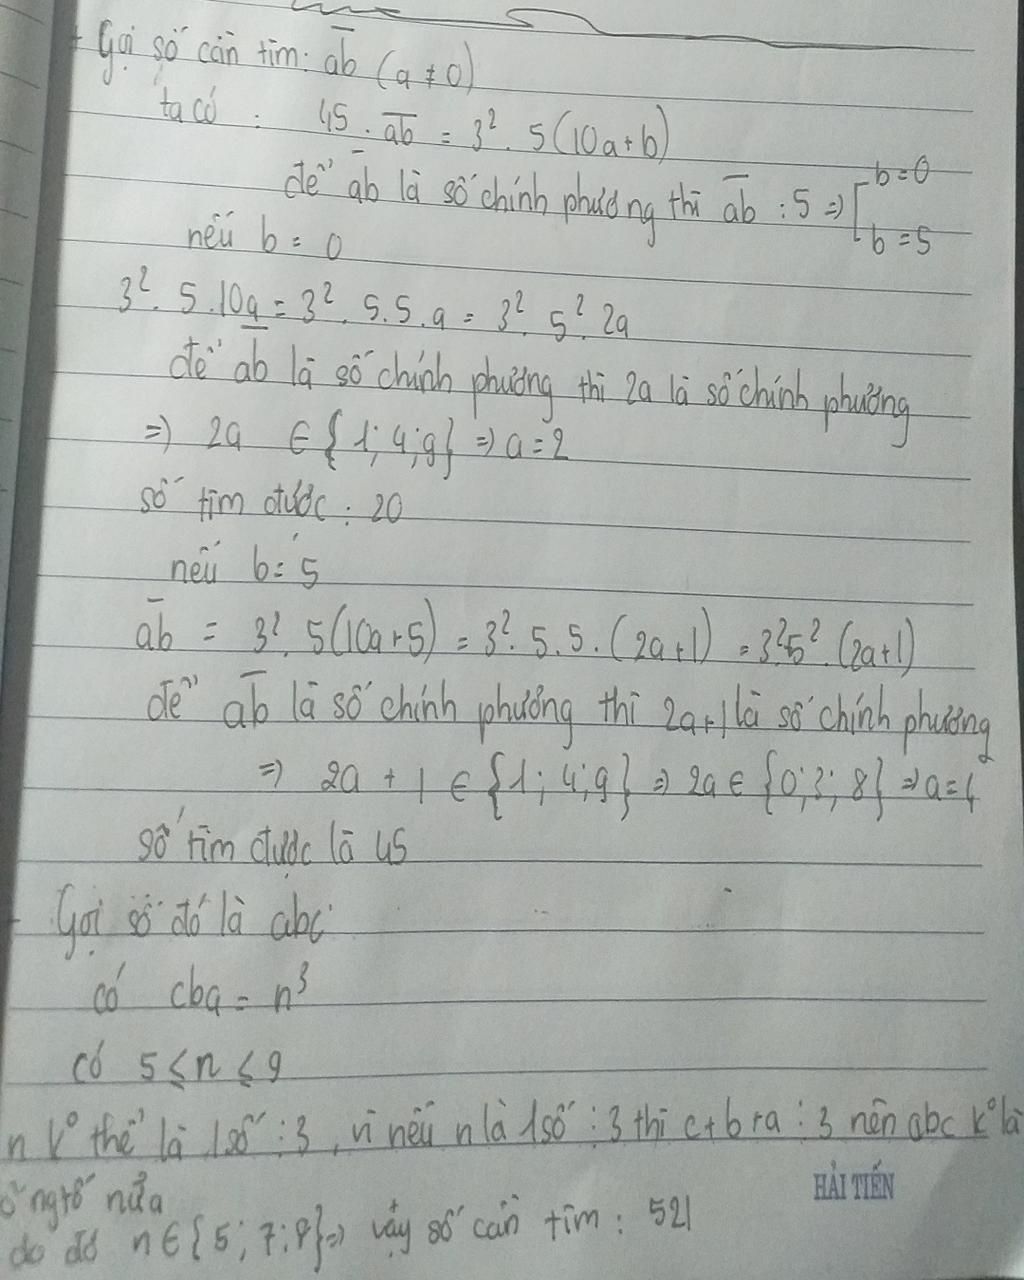 + Gọi số cần tìm: ab (a ≠ 0)
ta có : 45 . ab = 3². 5(10a+b)
để ab là số chính phương thì ab ⋮ 5 => [ b = 0
b = 5
nếu b = 0
3². 5 .10a = 3². 5.5.a = 3². 5². 2a
để ab là số chính phương thì 2a là số chính phương
=> 2a ∈ {1; 4; 9} => a = 2
số tìm được : 20
nếu b = 5
ab = 3². 5(10a+5) = 3². 5.5.(2a+1) = 3².5².(2a+1)
để ab là số chính phương thì 2a+1 là số chính phương
=> 2a + 1 ∈ {1; 4; 9} => 2a ∈ {0; 3; 8} => a = 4
số tìm được là 45
+ Gọi số đó là abc
có cba = n³
có 5 ≤ n ≤ 9
n k° thể là 1 số ⋮ 3, vì nếu n là 1 số ⋮ 3 thì c+b+a ⋮ 3 nên abc k° là
ngtố nữa
do đó n ∈ {5; 7; 8} => vậy số cần tìm : 521
HẢI TIẾN